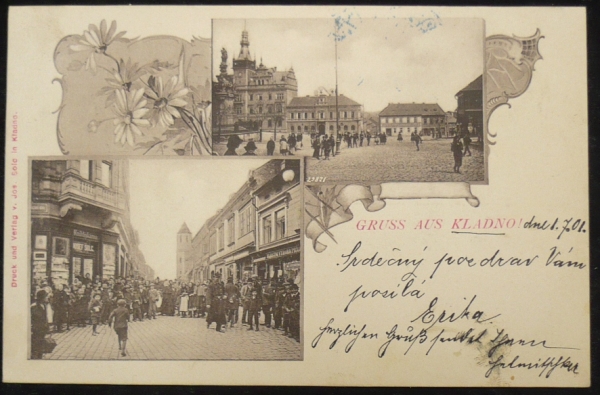 Druck und Verlag v. Jos. Solz in Kladno.
23871
GRUSS AUS KLADNO!
dne 1.7.01.
Srdečný pozdrav Vám
posílá
Erika
Herzlichen Gruß sendet Ihnen